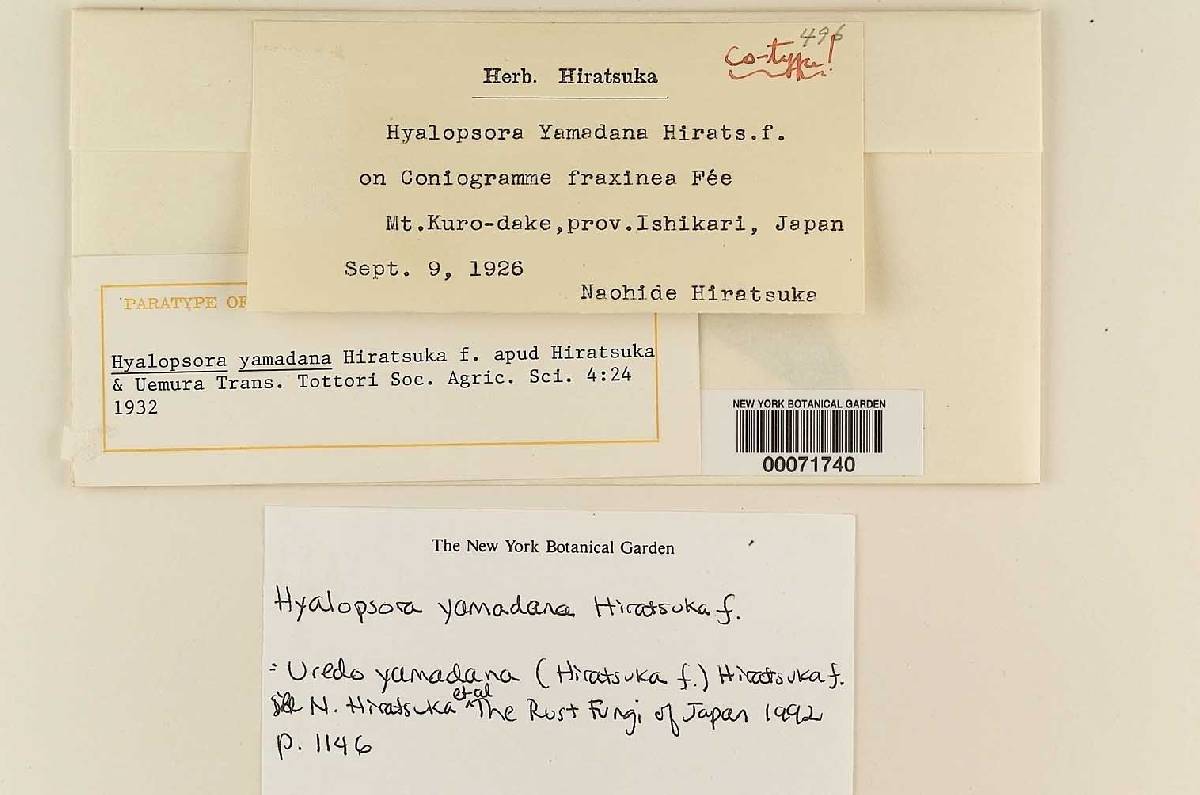 496
Co-type!
Herb. Hiratsuka
Hyalopsora Yamadana Hirats.f.
on Coniogramme fraxinea Fée
Mt.Kuro-dake,prov.Ishikari, Japan
Sept. 9, 1926
Naohide Hiratsuka
PARATYPE OF
Hyalopsora yamadana Hiratsuka f. apud Hiratsuka
& Uemura Trans. Tottori Soc. Agric. Sci. 4:24
1932
NEW YORK BOTANICAL GARDEN
00071740
The New York Botanical Garden
Hyalopsora yamadana Hiratsuka f.
= Uredo yamadana (Hiratsuka f.) Hiratsuka f.
N. Hiratsuka et al The Rust Fungi of Japan 1992
p. 1146